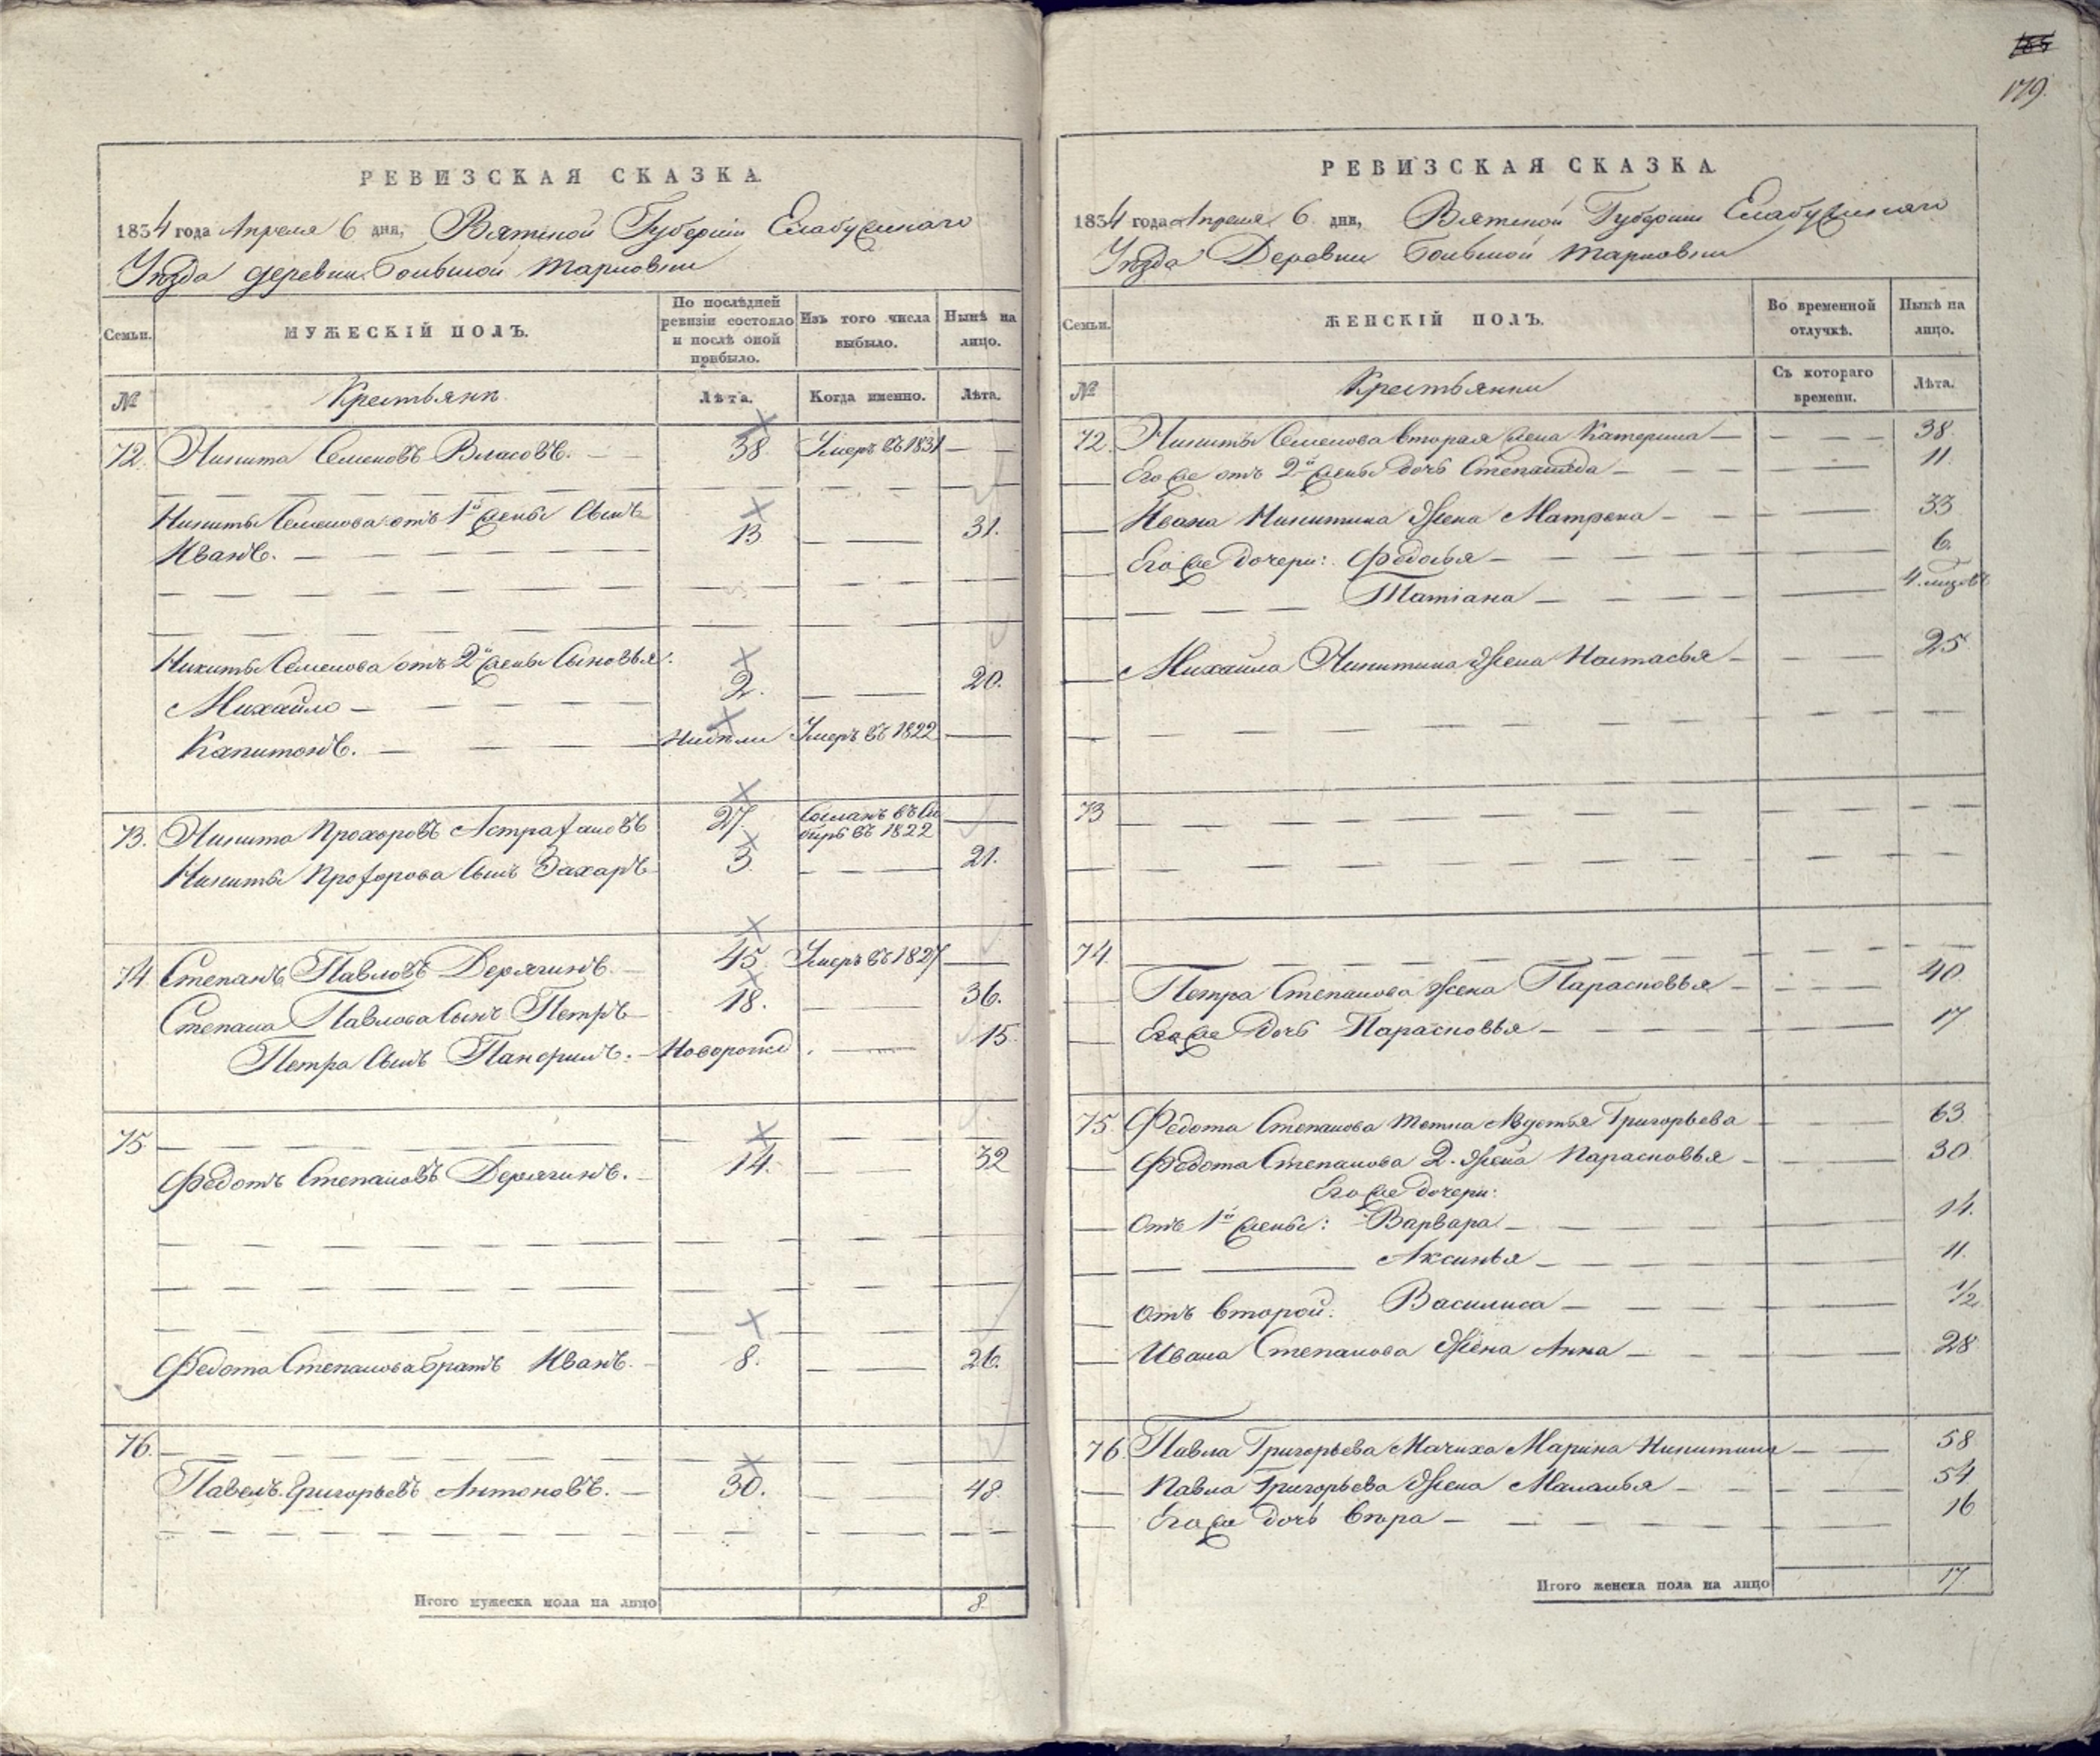 РЕВИЗСКАЯ СКАЗКА.
1834 года Апреля 6 дня, Вятской Губернии Елабужскаго
Уезда деревни Большой Тарловки
Семьи.
МУЖЕСКІЙ ПОЛЪ.
По послѣдней ревизіи состояло и послѣ оной прибыло.
Изъ того числа выбыло.
Нынѣ на лицо.
№
Крестьяне
Лѣта.
Когда именно.
Лѣта.
72. Никита Семеновъ Власовъ. 38 Умеръ въ 1831
Никиты Семенова отъ 1й жены Сынъ
Иванъ. 13 31.
Никиты Семенова отъ 2й жены Сыновья:
Михайло 2. 20.
Капитонъ. Недели Умеръ въ 1822
73. Никита Прохоровъ Астрафановъ 27. Сосланъ въ Си
бирь въ 1822
Никиты Прохорова Сынъ Захаръ 3. 21.
74 Степанъ Павловъ Дерягинъ. 45 Умеръ въ 1827
Степана Павлова Сынъ Петръ 18. 36.
Петра Сынъ Панфилъ. Новорожд. 15.
75
Федотъ Степановъ Дерягинъ. 14. 32
Федота Степанова братъ Иванъ. 8. 26.
76.
Павелъ Григорьевъ Антоновъ. 30. 48.
Итого мужеска пола на лицо 8.
179.
РЕВИЗСКАЯ СКАЗКА.
1834 года Апреля 6 дня, Вятской Губернии Елабужскаго
Уезда Деревни Большой Тарловки
Семьи.
ЖЕНСКІЙ ПОЛЪ.
Во временной отлучкѣ.
Нынѣ на лицо.
№
Крестьянки
Съ котораго времени.
Лѣта.
72. Никиты Семенова вторая жена Катерина 38.
Его же отъ 2й жены дочь Степанида 11.
Ивана Никитина Жена Матрена 33
Его же дочери: Федосья 6.
Татіана 4.
Михайла Никитина Жена Настасья 25
73
74.
Петра Степанова Жена Парасковья 40
Его же дочь Парасковья 17
75. Федота Степанова тетка Авдотья Григорьева 63.
Федота Степанова 2. Жена Парасковья 30
Его же дочери:
Отъ 1й жены: Варвара 14.
Аксинья 11.
Отъ второй: Василиса 1/2.
Ивана Степанова Жена Анна 28
76. Павла Григорьева Мачиха Марина Никитина 58
Павла Григорьева Жена Маланья 54
Его же дочь Вера 16
Итого женска пола на лицо 17